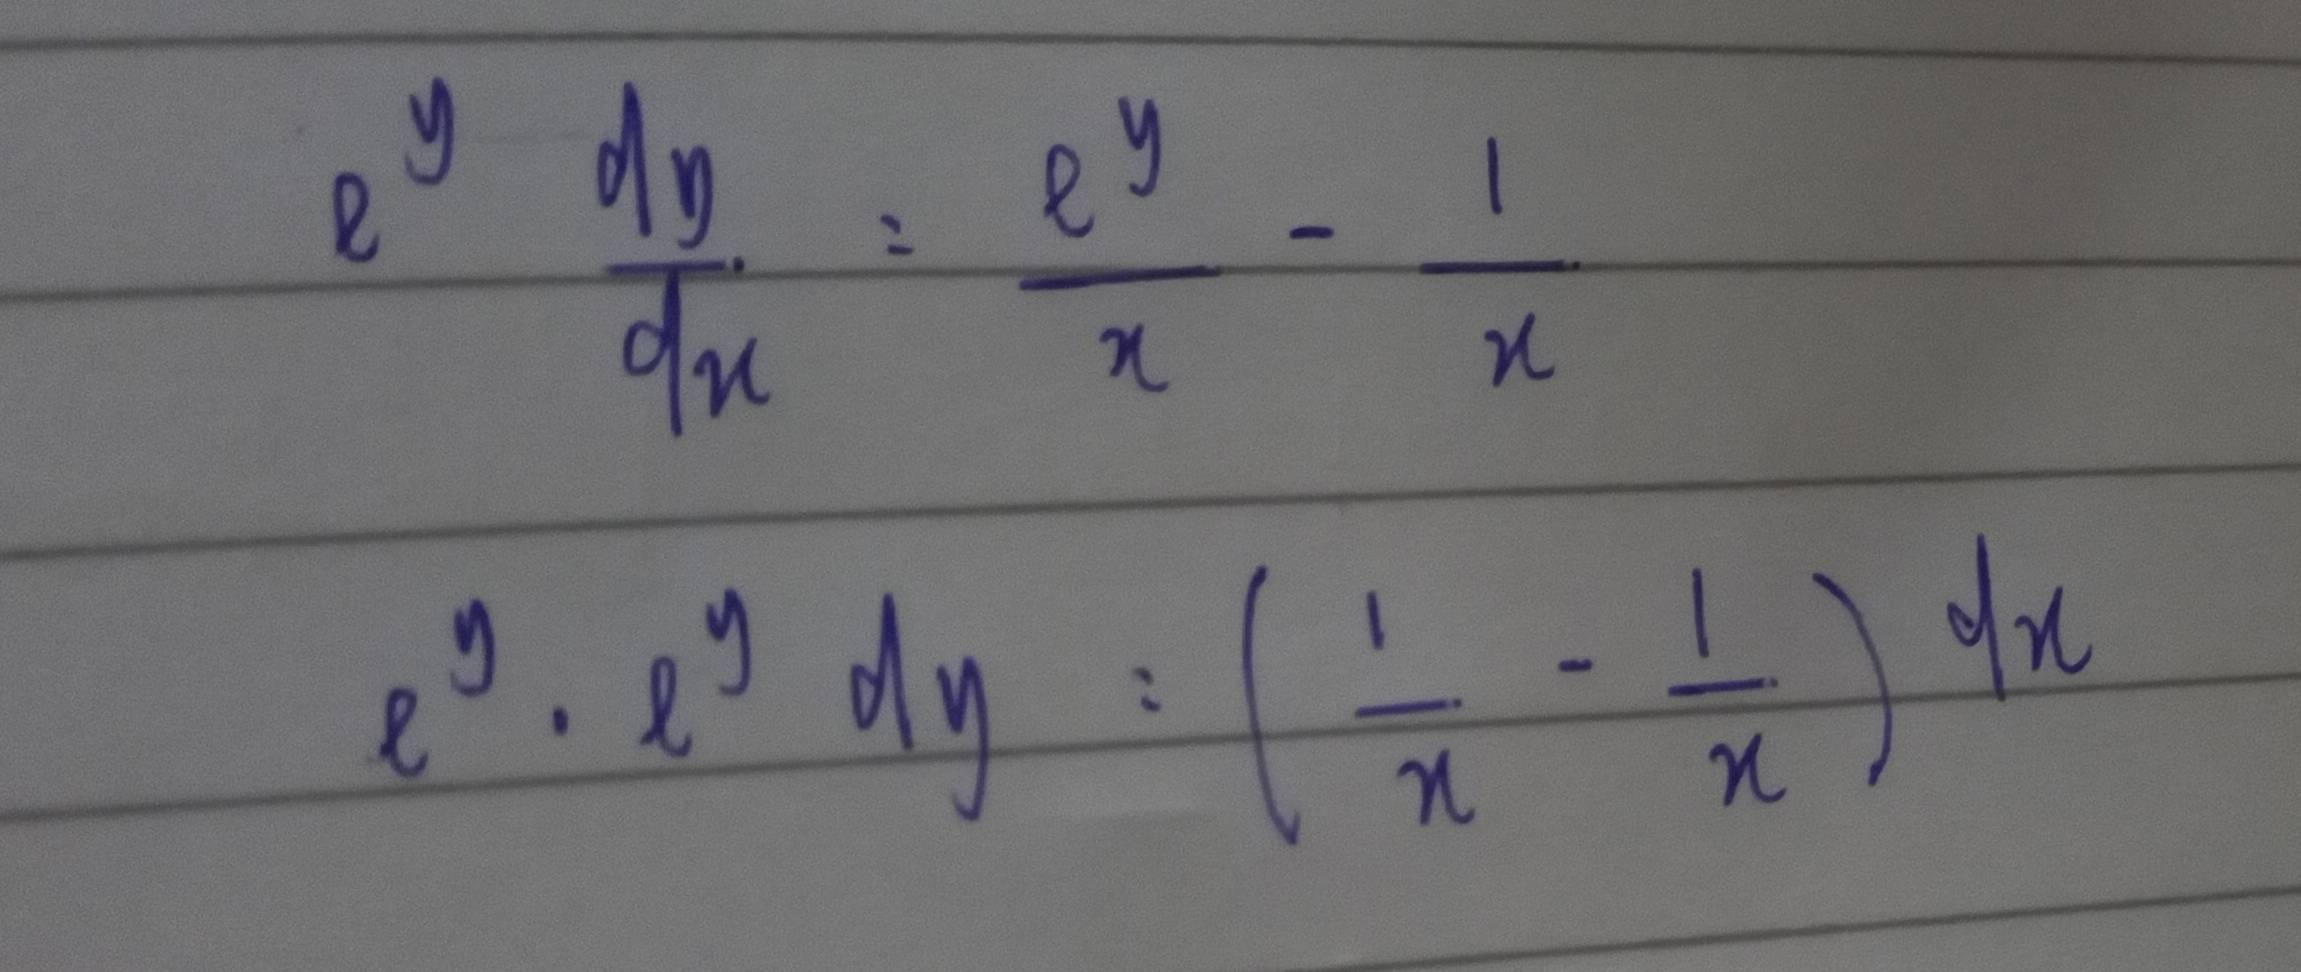 e^y dy/dx = e^y/x - 1/x
e^y . e^y dy = (1/x - 1/x) dx